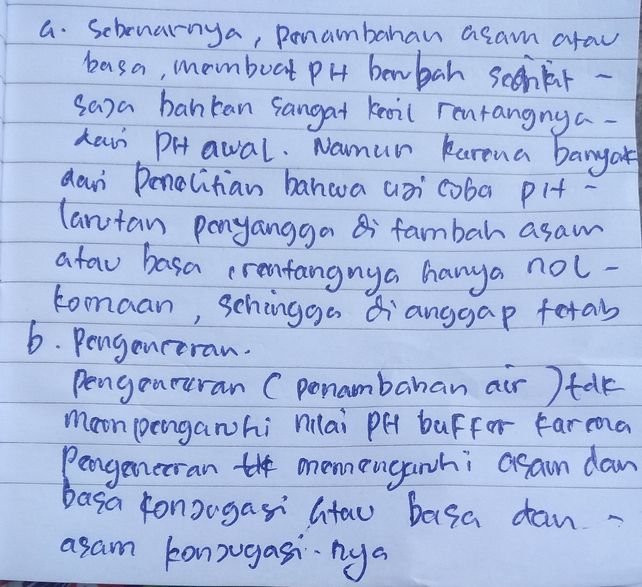 a. Sebenarnya, penambahan asam atau
basa, membuat pH berubah sedikit -
saja bahkan sangat kecil rentangnya -
dari PH awal. Namun karena banyak
dari Penelitian bahwa uji coba pH -
larutan penyangga di tambah asam
atau basa, rentangnya hanya nol -
komaan, sehingga di anggap tetab
b. Pengenceran.
pengenceran (penambahan air) tdk
mempengaruhi nilai PH buffer karena
Pengenceran tdk memengaruhi asam dan
basa konjugasi Atau basa dan -
asam konjugasi-nya